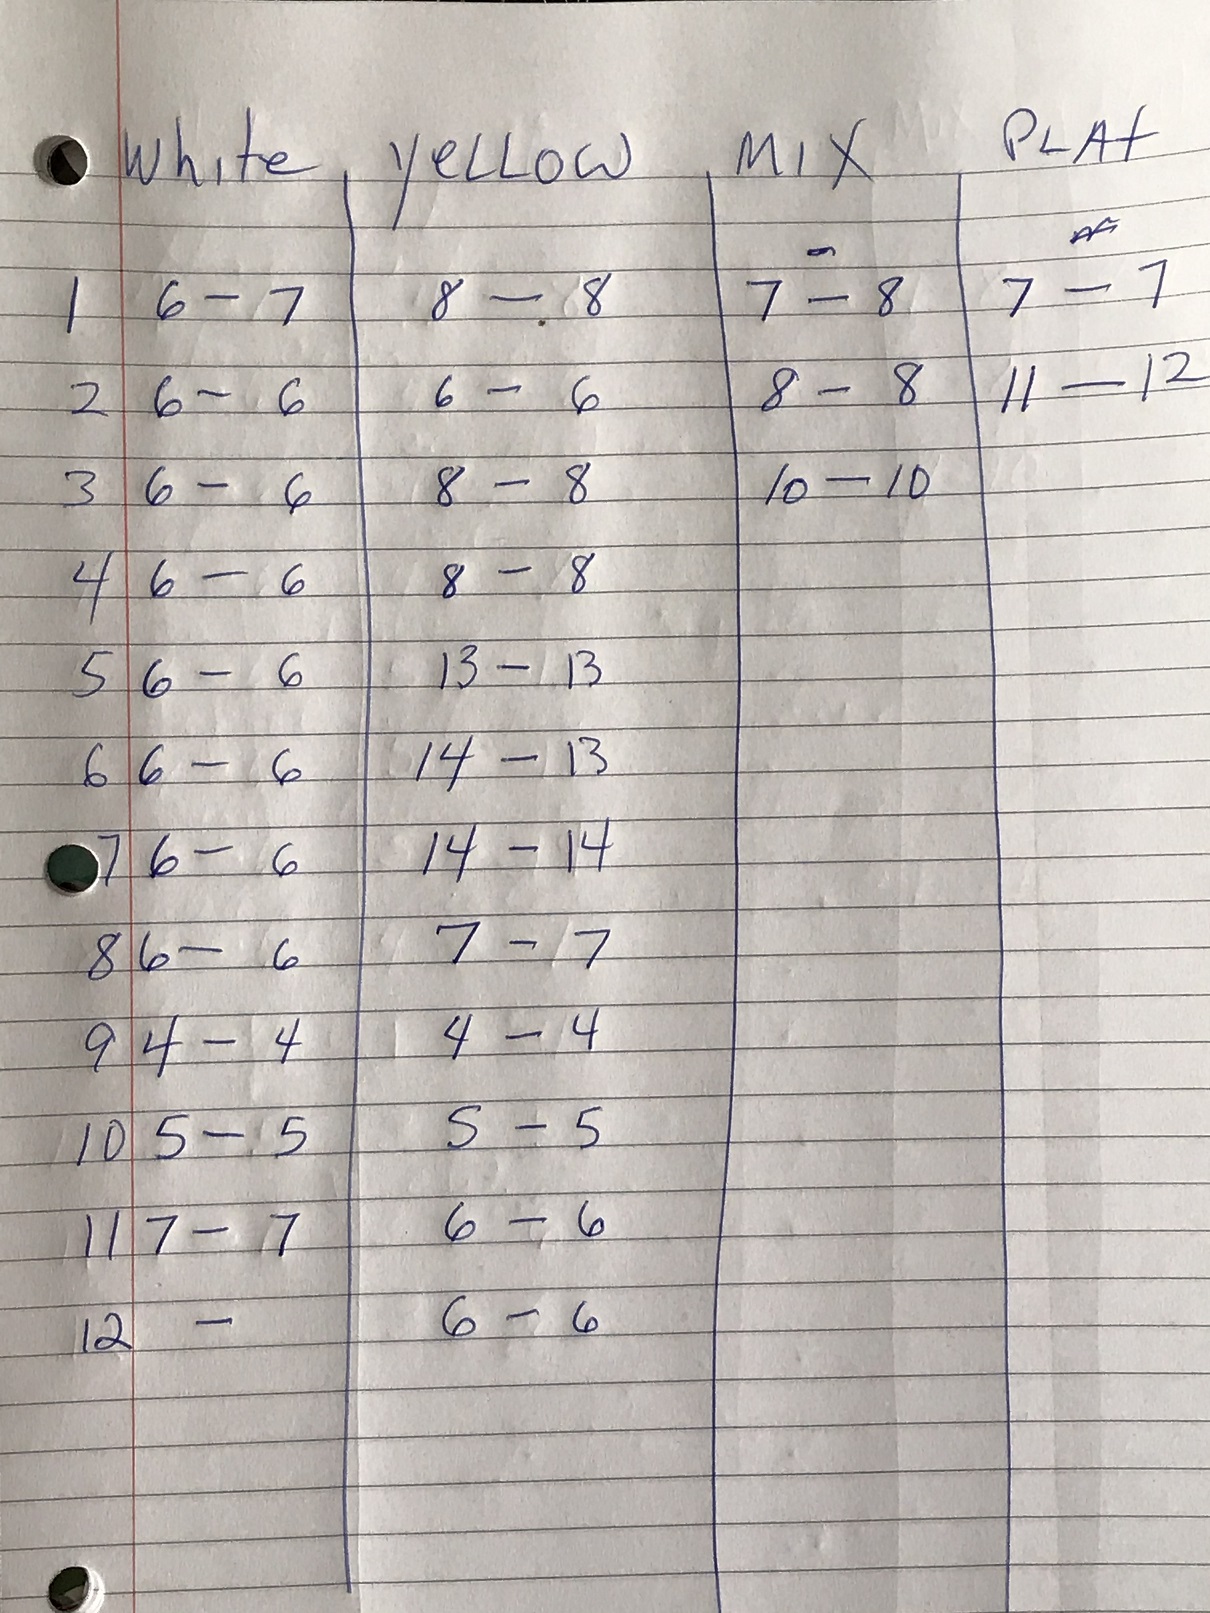 White yeLLOW MIX PLAt
1 6 - 7 8 - 8 7 - 8 7 - 7
2 6 - 6 6 - 6 8 - 8 11 - 12
3 6 - 6 8 - 8 10 - 10
4 6 - 6 8 - 8
5 6 - 6 13 - 13
6 6 - 6 14 - 13
7 6 - 6 14 - 14
8 6 - 6 7 - 7
9 4 - 4 4 - 4
10 5 - 5 5 - 5
11 7 - 7 6 - 6
12 - 6 - 6